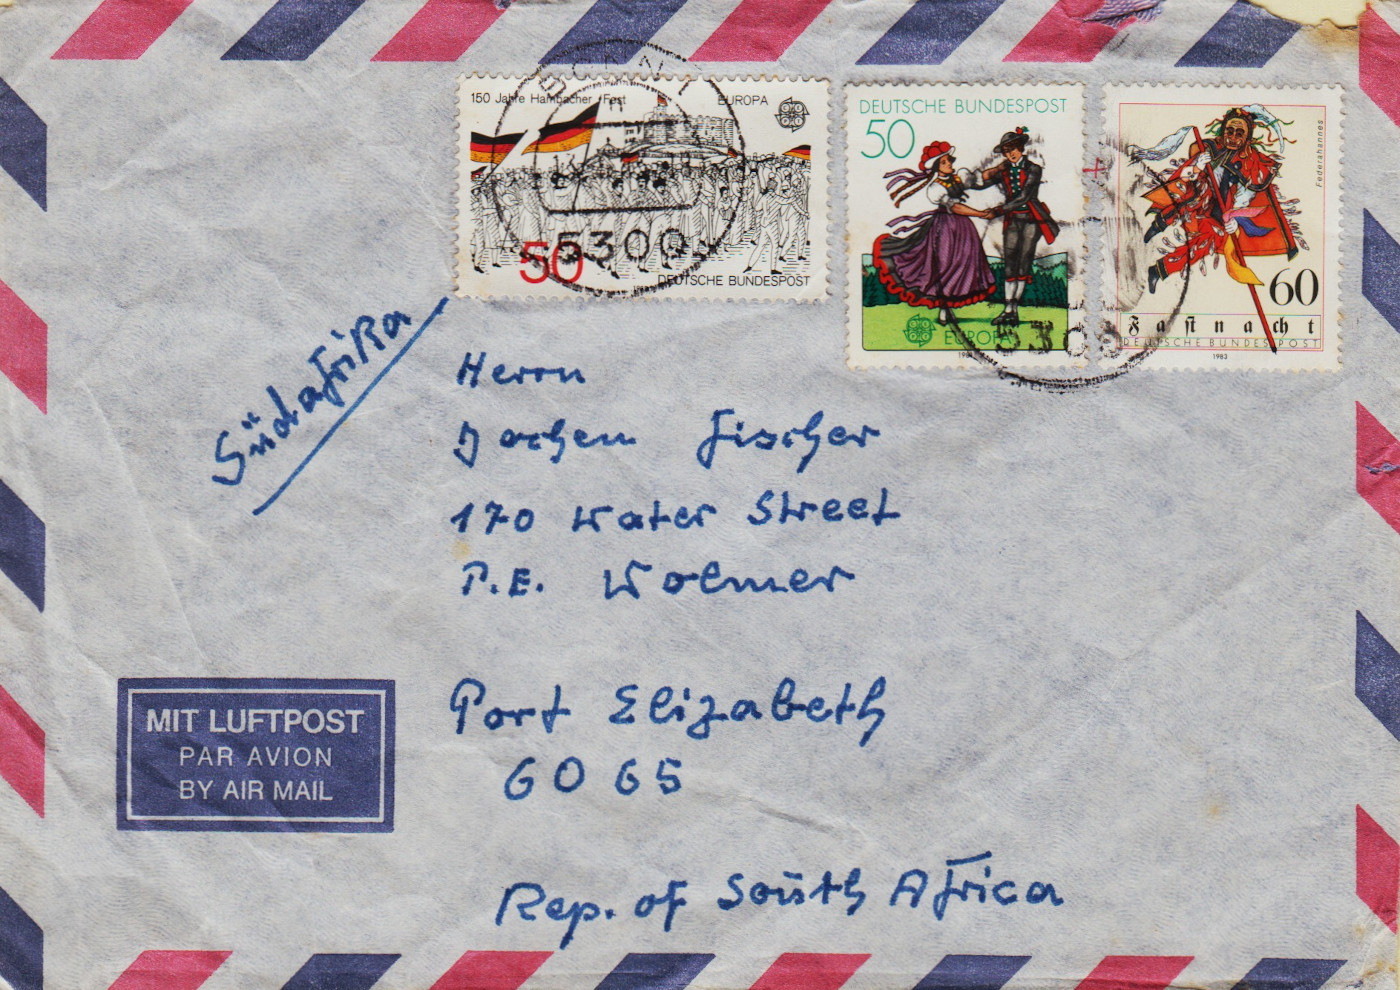 150 Jahre Hambacher Fest EUROPA
50
DEUTSCHE BUNDESPOST
5300
DEUTSCHE BUNDESPOST
50
EUROPA
Federahannes
60
Fastnacht
DEUTSCHE BUNDESPOST
1983
Südafrika
Herrn
Jochen Fischer
170 Water Street
P.E. Wolmer
Port Elizabeth
6065
Rep. of South Africa
MIT LUFTPOST
PAR AVION
BY AIR MAIL